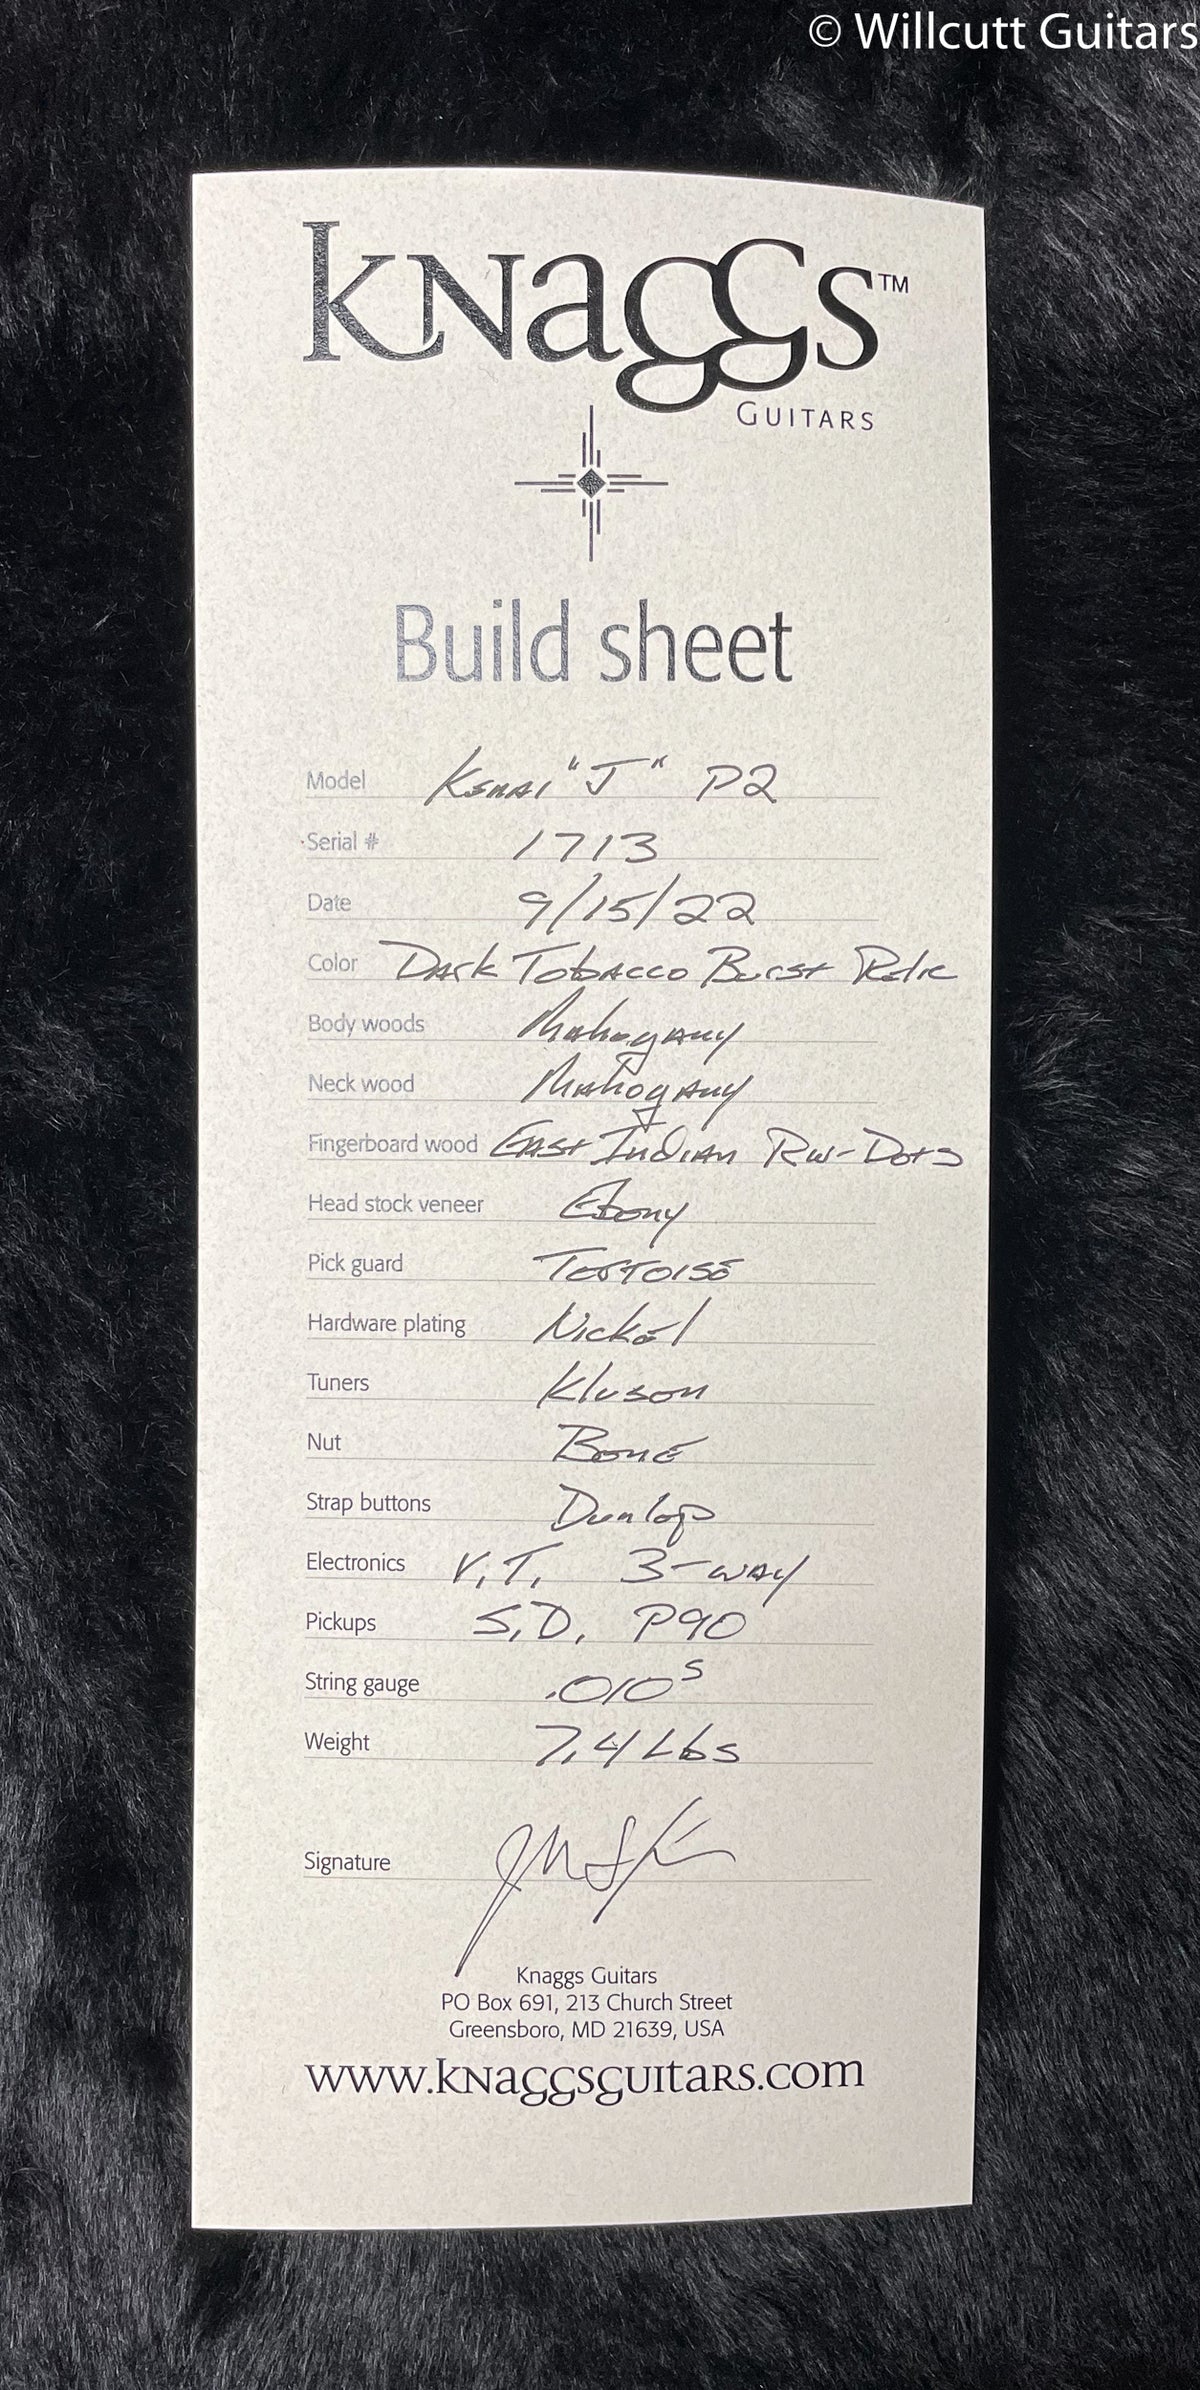 © Willcutt Guitars
Knaggs™
Guitars
Build sheet
Model Kenai "J" P2
Serial # 1713
Date 9/15/22
Color Dark Tobacco Burst Relic
Body woods Mahogany
Neck wood Mahogany
Fingerboard wood East Indian RW-Dots
Head stock veneer Ebony
Pick guard Tortoise
Hardware plating Nickel
Tuners Kluson
Nut Bone
Strap buttons Dunlop
Electronics V.T. 3-way
Pickups S.D. P90
String gauge .010s
Weight 7.4 Lbs
Signature
Knaggs Guitars
PO Box 691, 213 Church Street
Greensboro, MD 21639, USA
www.knaggsguitars.com